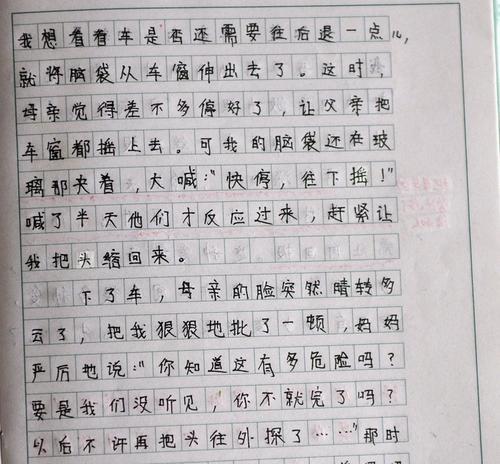 我想看看车是否还需要往后退一点儿，
就将脑袋从车窗伸出去了。这时，
母亲觉得差不多停好了，让父亲把
车窗都摇上去。可我的脑袋还在玻
璃那夹着，大喊：“快停，往下摇！”
喊了半天他们才反应过来，赶紧让
我把头缩回来。
下了车，母亲的脸突然晴转多
云了，把我狠狠地批了一顿，妈妈
严厉地说：“你知道这有多危险吗？
要是我们没听见，你不就完了吗？
以后不许再把头往外探了……”那时